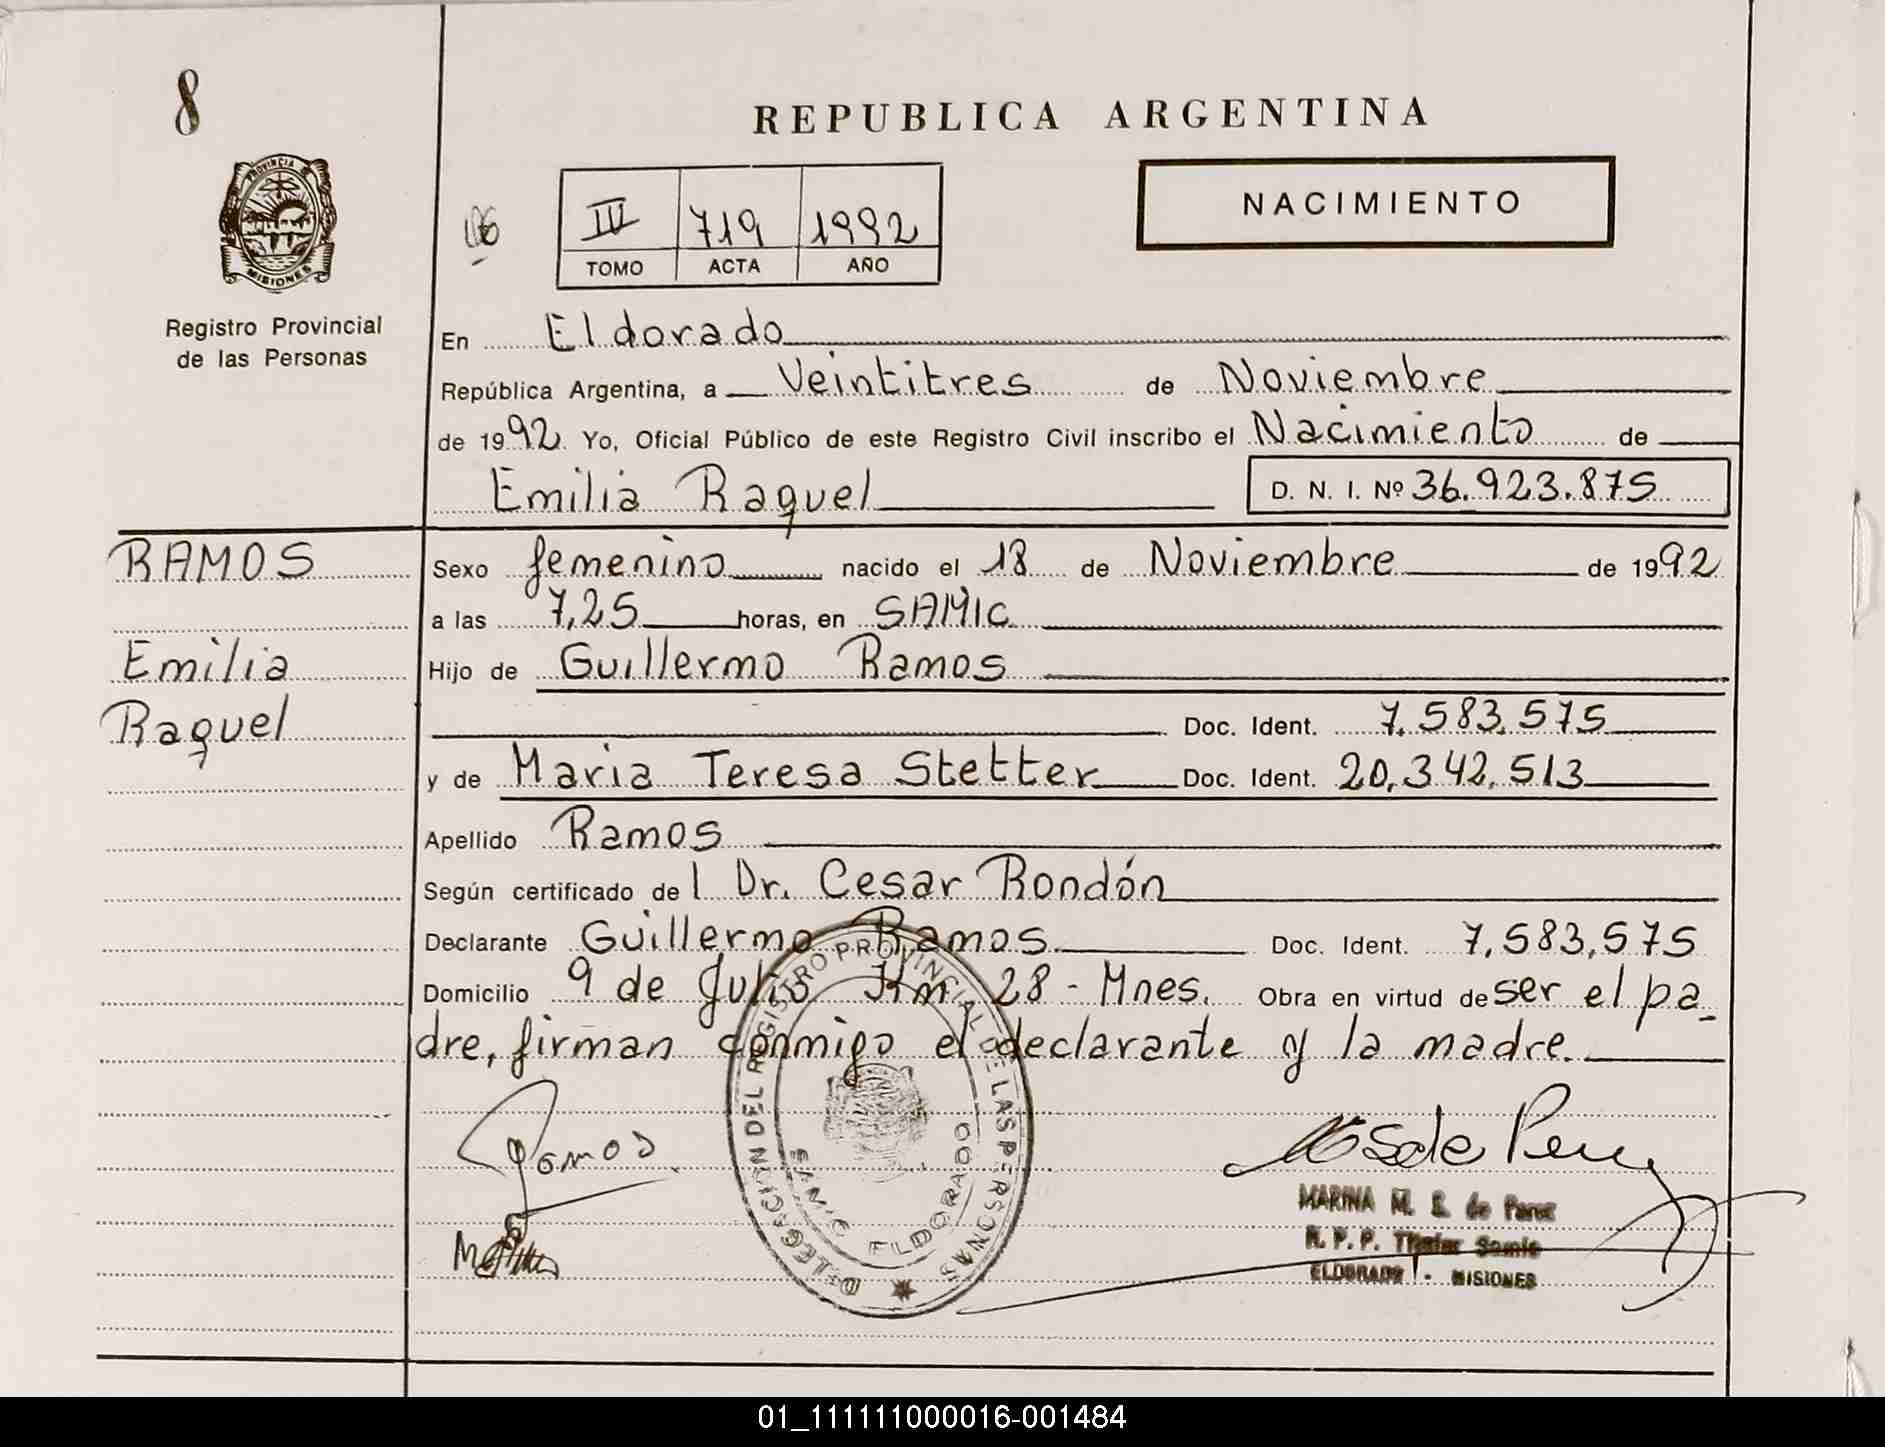 8
REPUBLICA ARGENTINA
PROVINCIA DE
MISIONES
Registro Provincial
de las Personas
III 719 1992
TOMO ACTA AÑO
NACIMIENTO
En Eldorado
República Argentina, a Veintitres de Noviembre
de 1992. Yo, Oficial Público de este Registro Civil inscribo el Nacimiento de
Emilia Raquel D. N. I. Nº 36.923.875
RAMOS
Emilia
Raquel
Sexo femenino nacido el 18 de Noviembre de 1992
a las 7,25 horas, en SAMIC
Hijo de Guillermo Ramos
Doc. Ident. 7.583.575
y de Maria Teresa Stetter Doc. Ident. 20.342.513
Apellido Ramos
Según certificado del Dr. Cesar Rondón
Declarante Guillermo Ramos Doc. Ident. 7.583.575
Domicilio 9 de Julio Km 28 - Mnes. Obra en virtud de ser el pa-
dre, firman conmigo el declarante y la madre.
Ramos
DELEGACION DEL REGISTRO PROVINCIAL DE LAS PERSONAS
SAMIC ELDORADO
MARINA M. S. de Perez
R. P. P. Titular Samic
ELDORADO - MISIONES
01_111111000016-001484